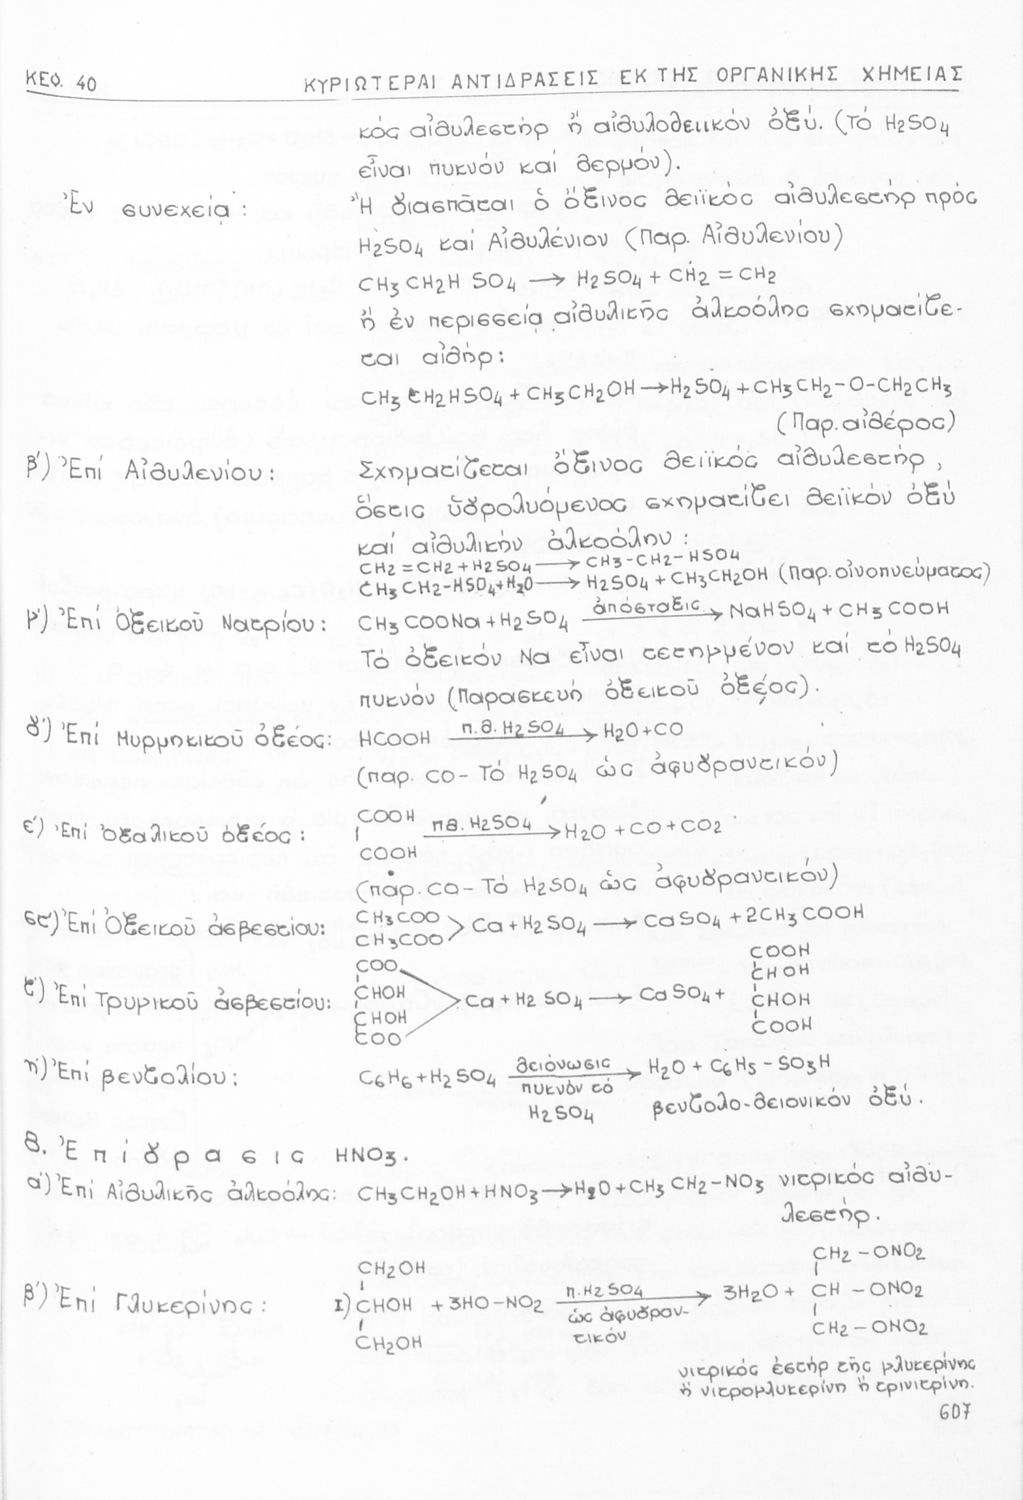 ΚΕΦ. 40 ΚΥΡΙΩΤΕΡΑΙ ΑΝΤΙΔΡΑΣΕΙΣ ΕΚ ΤΗΣ ΟΡΓΑΝΙΚΗΣ ΧΗΜΕΙΑΣ
κός αἰθυλεστήρ ἤ αἰθυλοθειικόν ὀξύ. (Τό H₂SO₄
εἶναι πυκνόν καί θερμόν).
Ἐν συνεχεία : Ἤ διασπᾶται ὁ ὄξινος θειϊκός αἰθυλεστήρ πρός
H₂SO₄ καί Αἰθυλένιον (Παρ. Αἰθυλενίου)
CH₃CH₂HSO₄ → H₂SO₄ + CH₂ = CH₂
ἤ ἐν περισσείᾳ αἰθυλικῆς ἀλκοόλης σχηματίζε-
ται αἰθήρ :
CH₃CH₂HSO₄ + CH₃CH₂OH → H₂SO₄ + CH₃CH₂-O-CH₂CH₃
(Παρ. αἰθέρος)
β΄) Ἐπί Αἰθυλενίου : Σχηματίζεται ὄξινος θειϊκός αἰθυλεστήρ ,
ὅστις ὑδρολυόμενος σχηματίζει θειϊκόν ὀξύ
καί αἰθυλικήν ἀλκοόλην :
CH₂=CH₂+H₂SO₄ → CH₃-CH₂-HSO₄
CH₃CH₂-HSO₄+H₂O → H₂SO₄ + CH₃CH₂OH (Παρ. οἰνοπνεύματος)
γ΄) Ἐπί Ὀξεικοῦ Νατρίου : CH₃COONa + H₂SO₄ ἀπόσταξις → NaHSO₄ + CH₃COOH
Τό ὀξεικόν Na εἶναι τετηγμένον καί τό H₂SO₄
πυκνόν (Παρασκευή ὀξεικοῦ ὀξέος).
δ΄) Ἐπί Μυρμηκικοῦ ὀξέος : HCOOH π.θ. H₂SO₄ → H₂O+CO
(παρ. CO - Τό H₂SO₄ ὡς ἀφυδραντικόν)
ε΄) Ἐπί ὀξαλικοῦ ὀξέος : COOH
| πθ. H₂SO₄ → H₂O + CO + CO₂
COOH
(παρ. CO - Τό H₂SO₄ ὡς ἀφυδραντικόν)
στ΄) Ἐπί Ὀξεικοῦ ἀσβεστίου : CH₃COO
CH₃COO > Ca + H₂SO₄ → CaSO₄ + 2CH₃COOH
ζ΄) Ἐπί Τρυγικοῦ ἀσβεστίου : COO COOH
CHOH CHOH
> Ca + H₂SO₄ → CaSO₄ +
CHOH CHOH
COO COOH
η΄) Ἐπί βενζολίου : C₆H₆ + H₂SO₄ θειόνωσις → H₂O + C₆H₅ - SO₃H
πυκνόν τό
H₂SO₄ βενζολο-θειονικόν ὀξύ .
8. Ἐπίδρασις HNO₃.
α΄) Ἐπί Αἰθυλικῆς ἀλκοόλης : CH₃CH₂OH + HNO₃ → H₂O + CH₃CH₂-NO₃ νιτρικός αἰθυ-
λεστήρ .
β΄) Ἐπί Γλυκερίνης : CH₂OH CH₂ - ONO₂
| |
I) CHOH + 3HO-NO₂ π. H₂SO₄ → 3H₂O + CH - ONO₂
ὡς ἀφυδραν-
| |
τικόν
CH₂OH CH₂ - ONO₂
νιτρικός ἐστήρ τῆς γλυκερίνης
ἤ νιτρογλυκερίνη ἤ τρινιτρίνη.
607